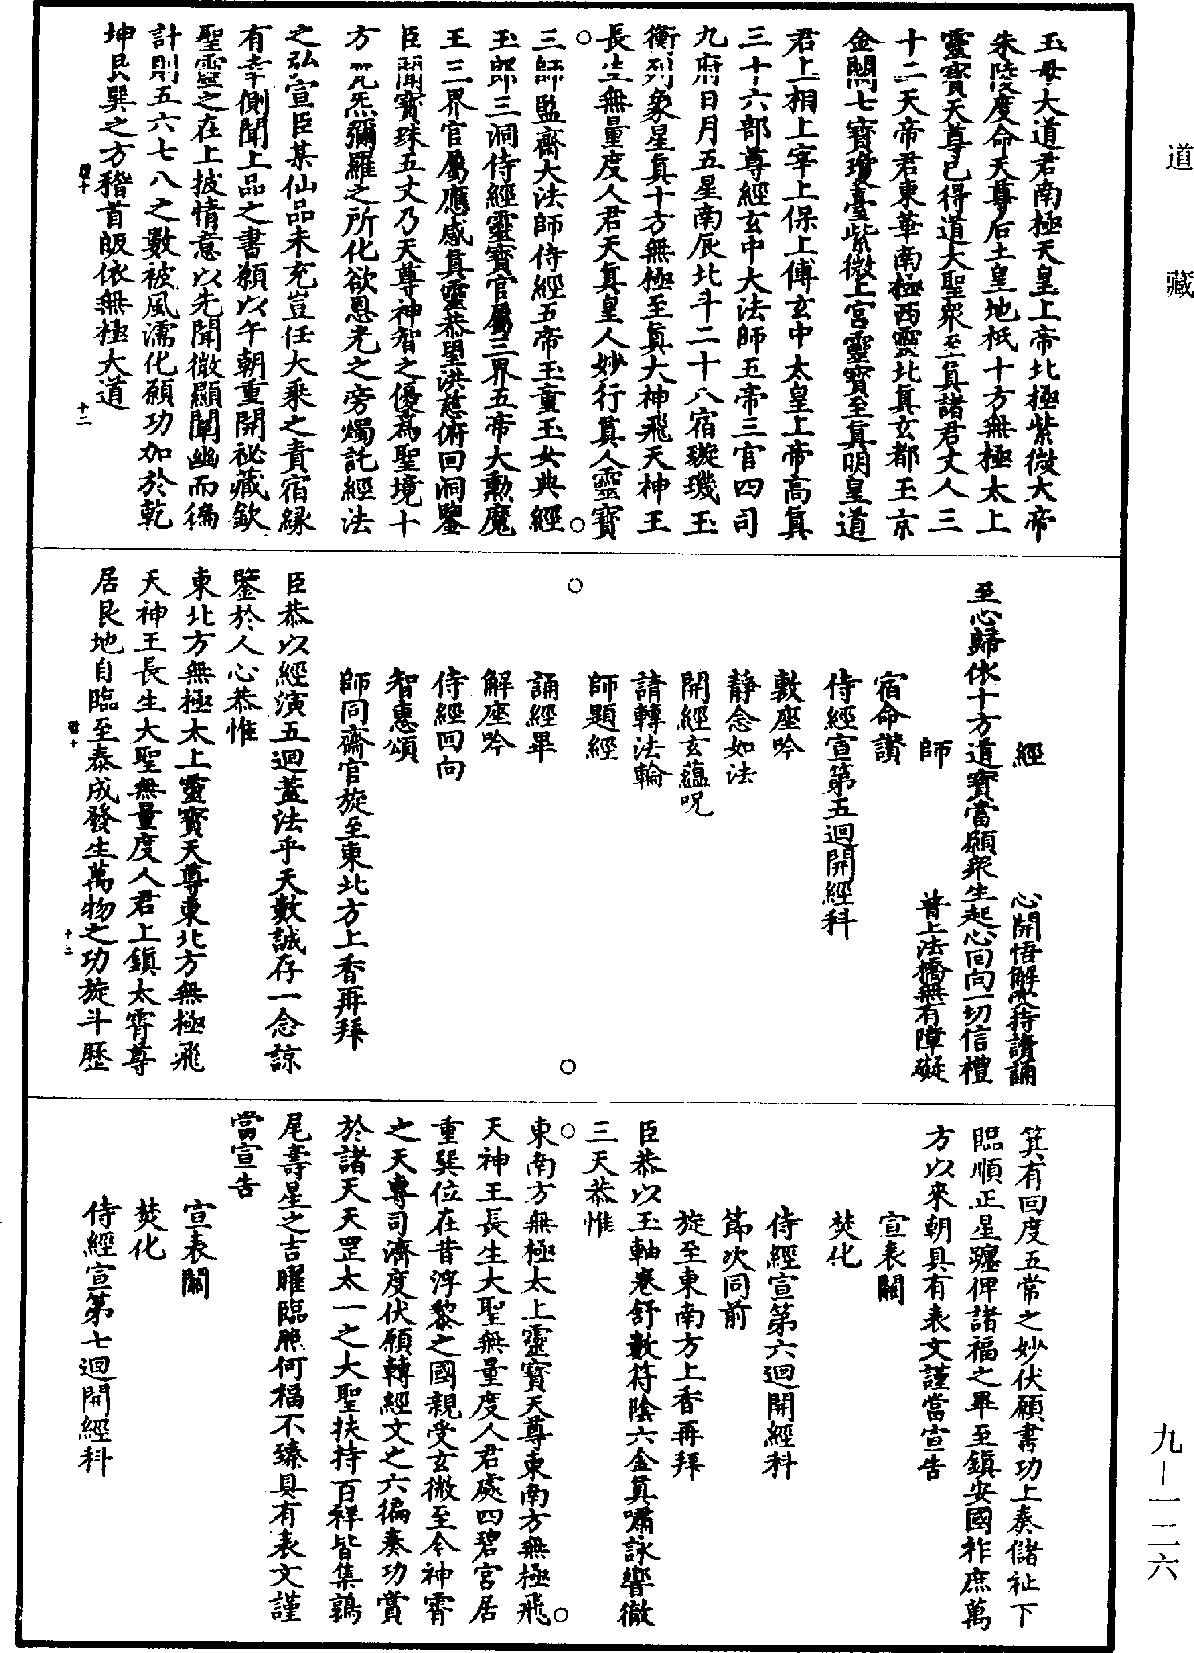 道藏
玉母大道君南極天皇上帝北極紫微大帝
朱陵度命天尊后土皇地祇十方無極太上
靈寶天尊已得道大聖衆至真諸君丈人三
十二天帝君東華南極西靈北真玄都玉京
金闕七寶瓊臺紫微上宮靈寶至真明皇道
君上相上宰上保上傅玄中太皇上帝高真
三十六部尊經玄中大法師五帝三官四司
九府日月五星南辰北斗二十八宿璇璣玉
衡列象星真十方無極至真大神飛天神王
長生無量度人君天真皇人妙行真人靈寶
三師監齋大法師侍經五帝玉童玉女典經
玉郎三洞侍經靈寶官屬三界五帝大勳魔
王三界官屬應感真靈恭望洪慈俯回洞鑒
臣聞寶珠五丈乃天尊神智之優爲聖境十
方元炁彌羅之所化欲恩光之旁燭託經法
之弘宣臣某仙品未充豈任大乘之責宿緣
有幸側聞上品之書願以午朝重開祕藏欽
聖靈之在上披情意以先聞微顯闡幽而徧
計則五六七八之數被風濡化願功加於乾
坤艮巽之方稽首皈依無極大道
十二
經　心開悟解受持讀誦
至心歸依十方道寶當願衆生起心回向一切信禮
師　普上法橋無有障礙
宿命讚
侍經宣第五迴開經科
敷座吟
靜念如法
開經玄蘊呪
請轉法輪
師題經
誦經畢
解座吟
侍經回向
智惠頌
師同齋官旋至東北方上香再拜
臣恭以經演五迴蓋法乎天數誠存一念諒
鑒於人心恭惟
東北方無極太上靈寶天尊東北方無極飛
天神王長生大聖無量度人君上鎮太霄尊
居艮地自臨至泰成發生萬物之功旋斗歷
十二
箕有回度五常之妙伏願書功上奏儲祉下
臨順正星躔俾諸福之畢至鎮安國祚庶萬
方以來朝具有表文謹當宣告
宣表關
焚化
侍經宣第六迴開經科
節次同前
旋至東南方上香再拜
臣恭以玉軸卷舒數符陰六金真嘯詠響徹
三天恭惟
東南方無極太上靈寶天尊東南方無極飛
天神王長生大聖無量度人君處四碧宮居
重巽位在昔浮黎之國親受玄微至今神霄
之天專司濟度伏願轉經文之六徧奏功賞
於諸天天罡太一之大聖扶持百祥皆集鶉
尾壽星之吉曜臨照何福不臻具有表文謹
當宣告
宣表關
焚化
侍經宣第七迴開經科
九－一二六